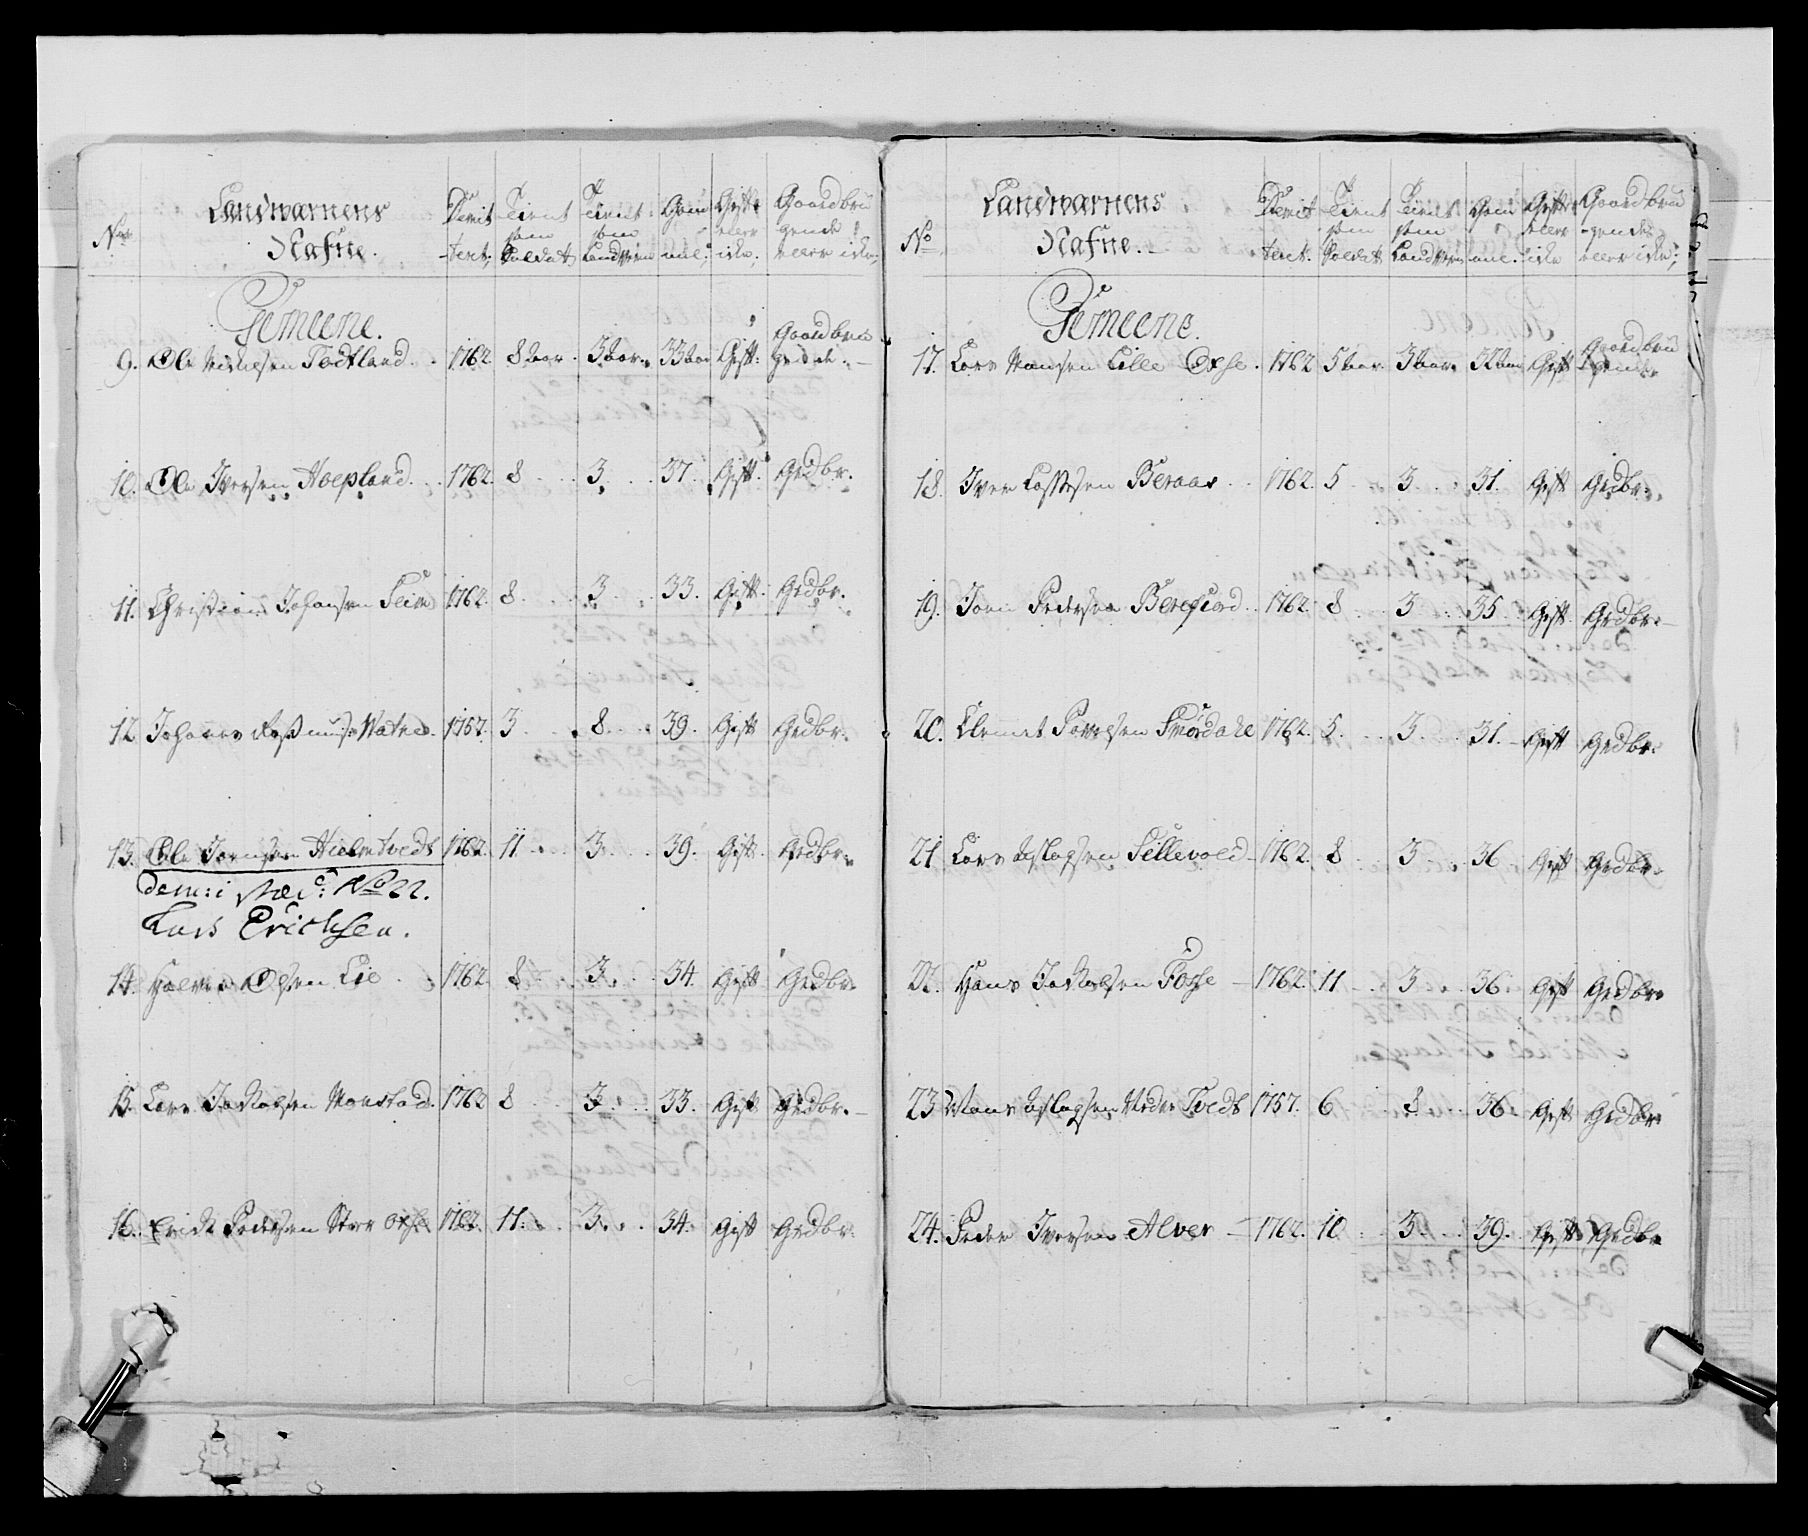 No Landværnens Nafne. Tient som Soldat Tient som Landværn Gift eller ikke; Gaardbrugende eller ikke;
Gemeene.
9. Ole Todtland. 1762. 8 aar. 3 aar. 33 aar Gift. Gaardbrugende.
10. Ole Iversen Hopland. 1762. 8 3. 37. Gift. Grdbr.
11. Christian Johansen Seim 1762. 8 3. 33. Gift. Grdbr.
12. Johannes Rasmus: Watne. 1757. 3 8. 39. Gift Grdbr.
13. Ole Joensen Hielmtvedt 1762. 11 3. 39. Gift. Grdbr.
dem: i No 22.
Lars Erichsen.
14. Olsen Lie 1762. 8 3. 34. Gift Grdbr.
15. Lars Jackobsen Monstad. 1762 8 3. 33. Gift Grdbr.
16. Erick Pedersen Store Oxse 1762. 11. 3. 34. Gift Grdbr.
No Landværnens Nafne. Tient som Soldat Tient som Landværn Gift eller ikke Gaardbrugende eller ikke;
Gemeene.
17. Lars Monsen Lille Oxse. 1762 5 aar 3 aar. 32 aar Gift Gaardbrugende.
18. Iver Beraas 1762. 5 3 31. Gift Grdbr.
19. Joen Pedersen Berefiord 1762. 8 3 35 Gift Grdbr.
20. Clemet 1762. 5. 3. 31. Gift Grdbr.
21. Lars Aslagsen Sellevold 1762. 8 3 36 Gift Grdbr.
22. Hans Jackobsen Fosse 1762. 11 3 36 Gift Grdbr.
23 Mons Aslagsen Nedre Tvedt 1757. 6 8 36 Gift Grdbr.
24. Peder Iversen Alver 1762. 10 3. 39. Gift Grdbr